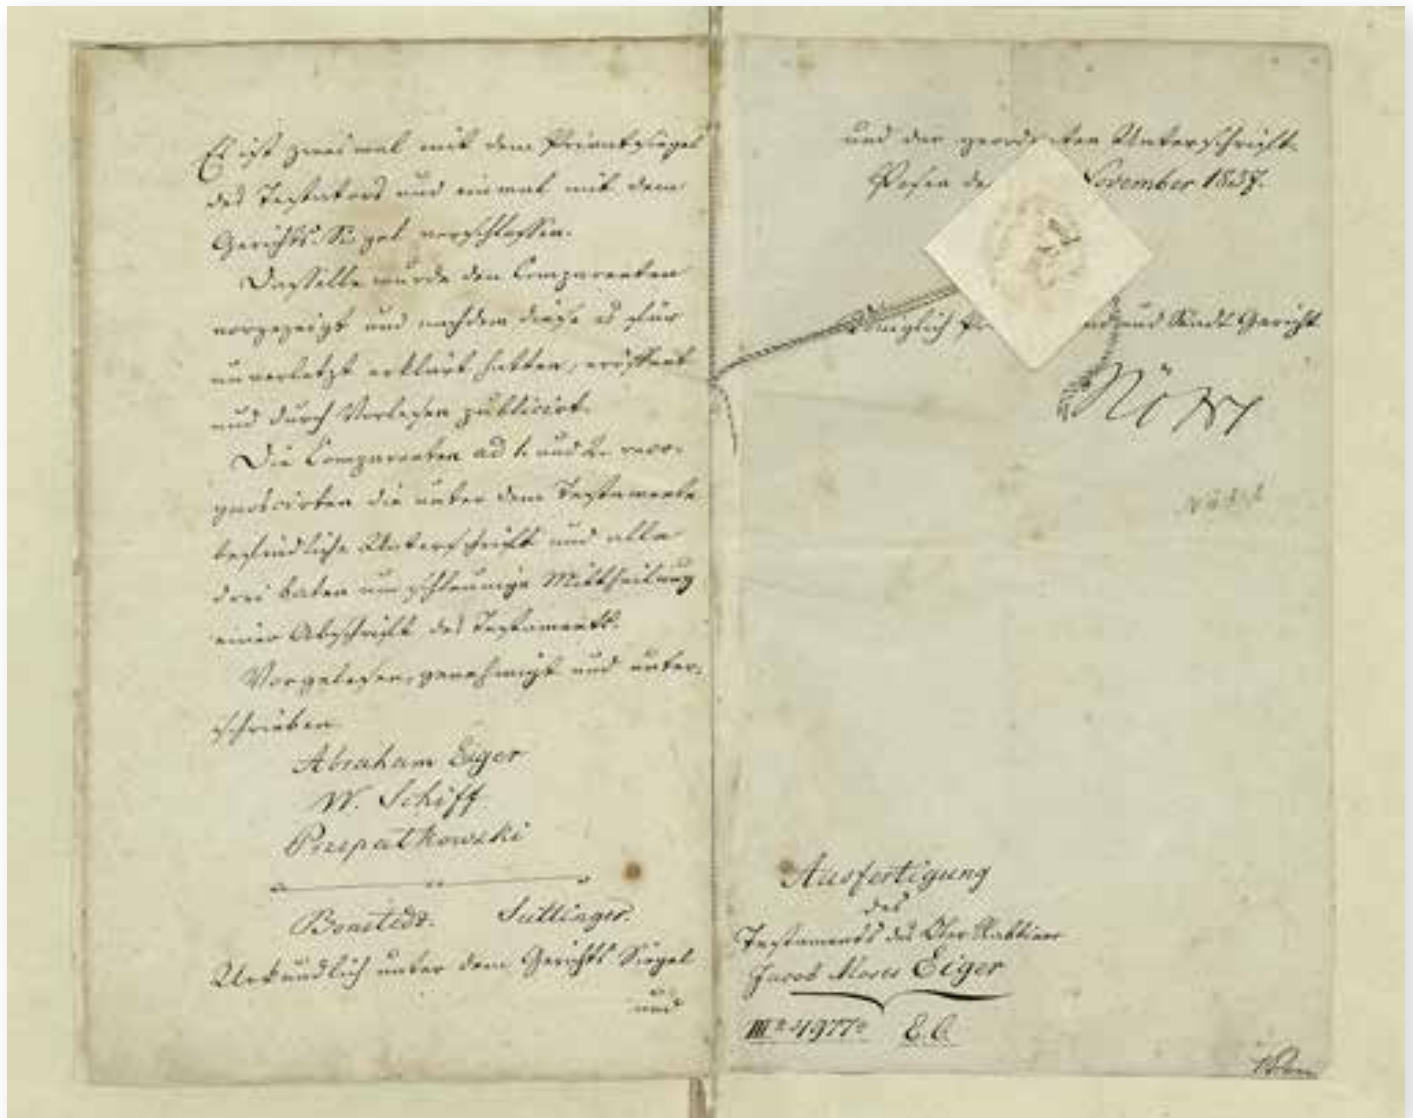 Es ist zweimal mit dem Privatsiegel
des Testators und einmal mit dem
Gerichts-Siegel verschlossen.
Dasselbe wurde den Comparenten
vorgezeigt und nachdem diese es für
unverletzt erklärt hatten, eröffnet
und durch Vorlesen publicirt.
Die Comparenten ad 1. und 2. reco-
gnoscirten die unter dem Testamente
befindliche Unterschrift und alle
drei baten um schleunige Mittheilung
einer Abschrift des Testaments.
Vorgelesen, genehmigt und unter-
schrieben
Abraham Eiger
W. Schiff
Bonstedt. Suttinger.
Urkundlich unter dem Gerichts Siegel
und
und der geordneten Unterschrift.
Posen November 1837.
Königlich und Stadt Gericht
Ausfertigung
des
Testaments des Ober Rabbiner
Jacob Moses Eiger
E. O.